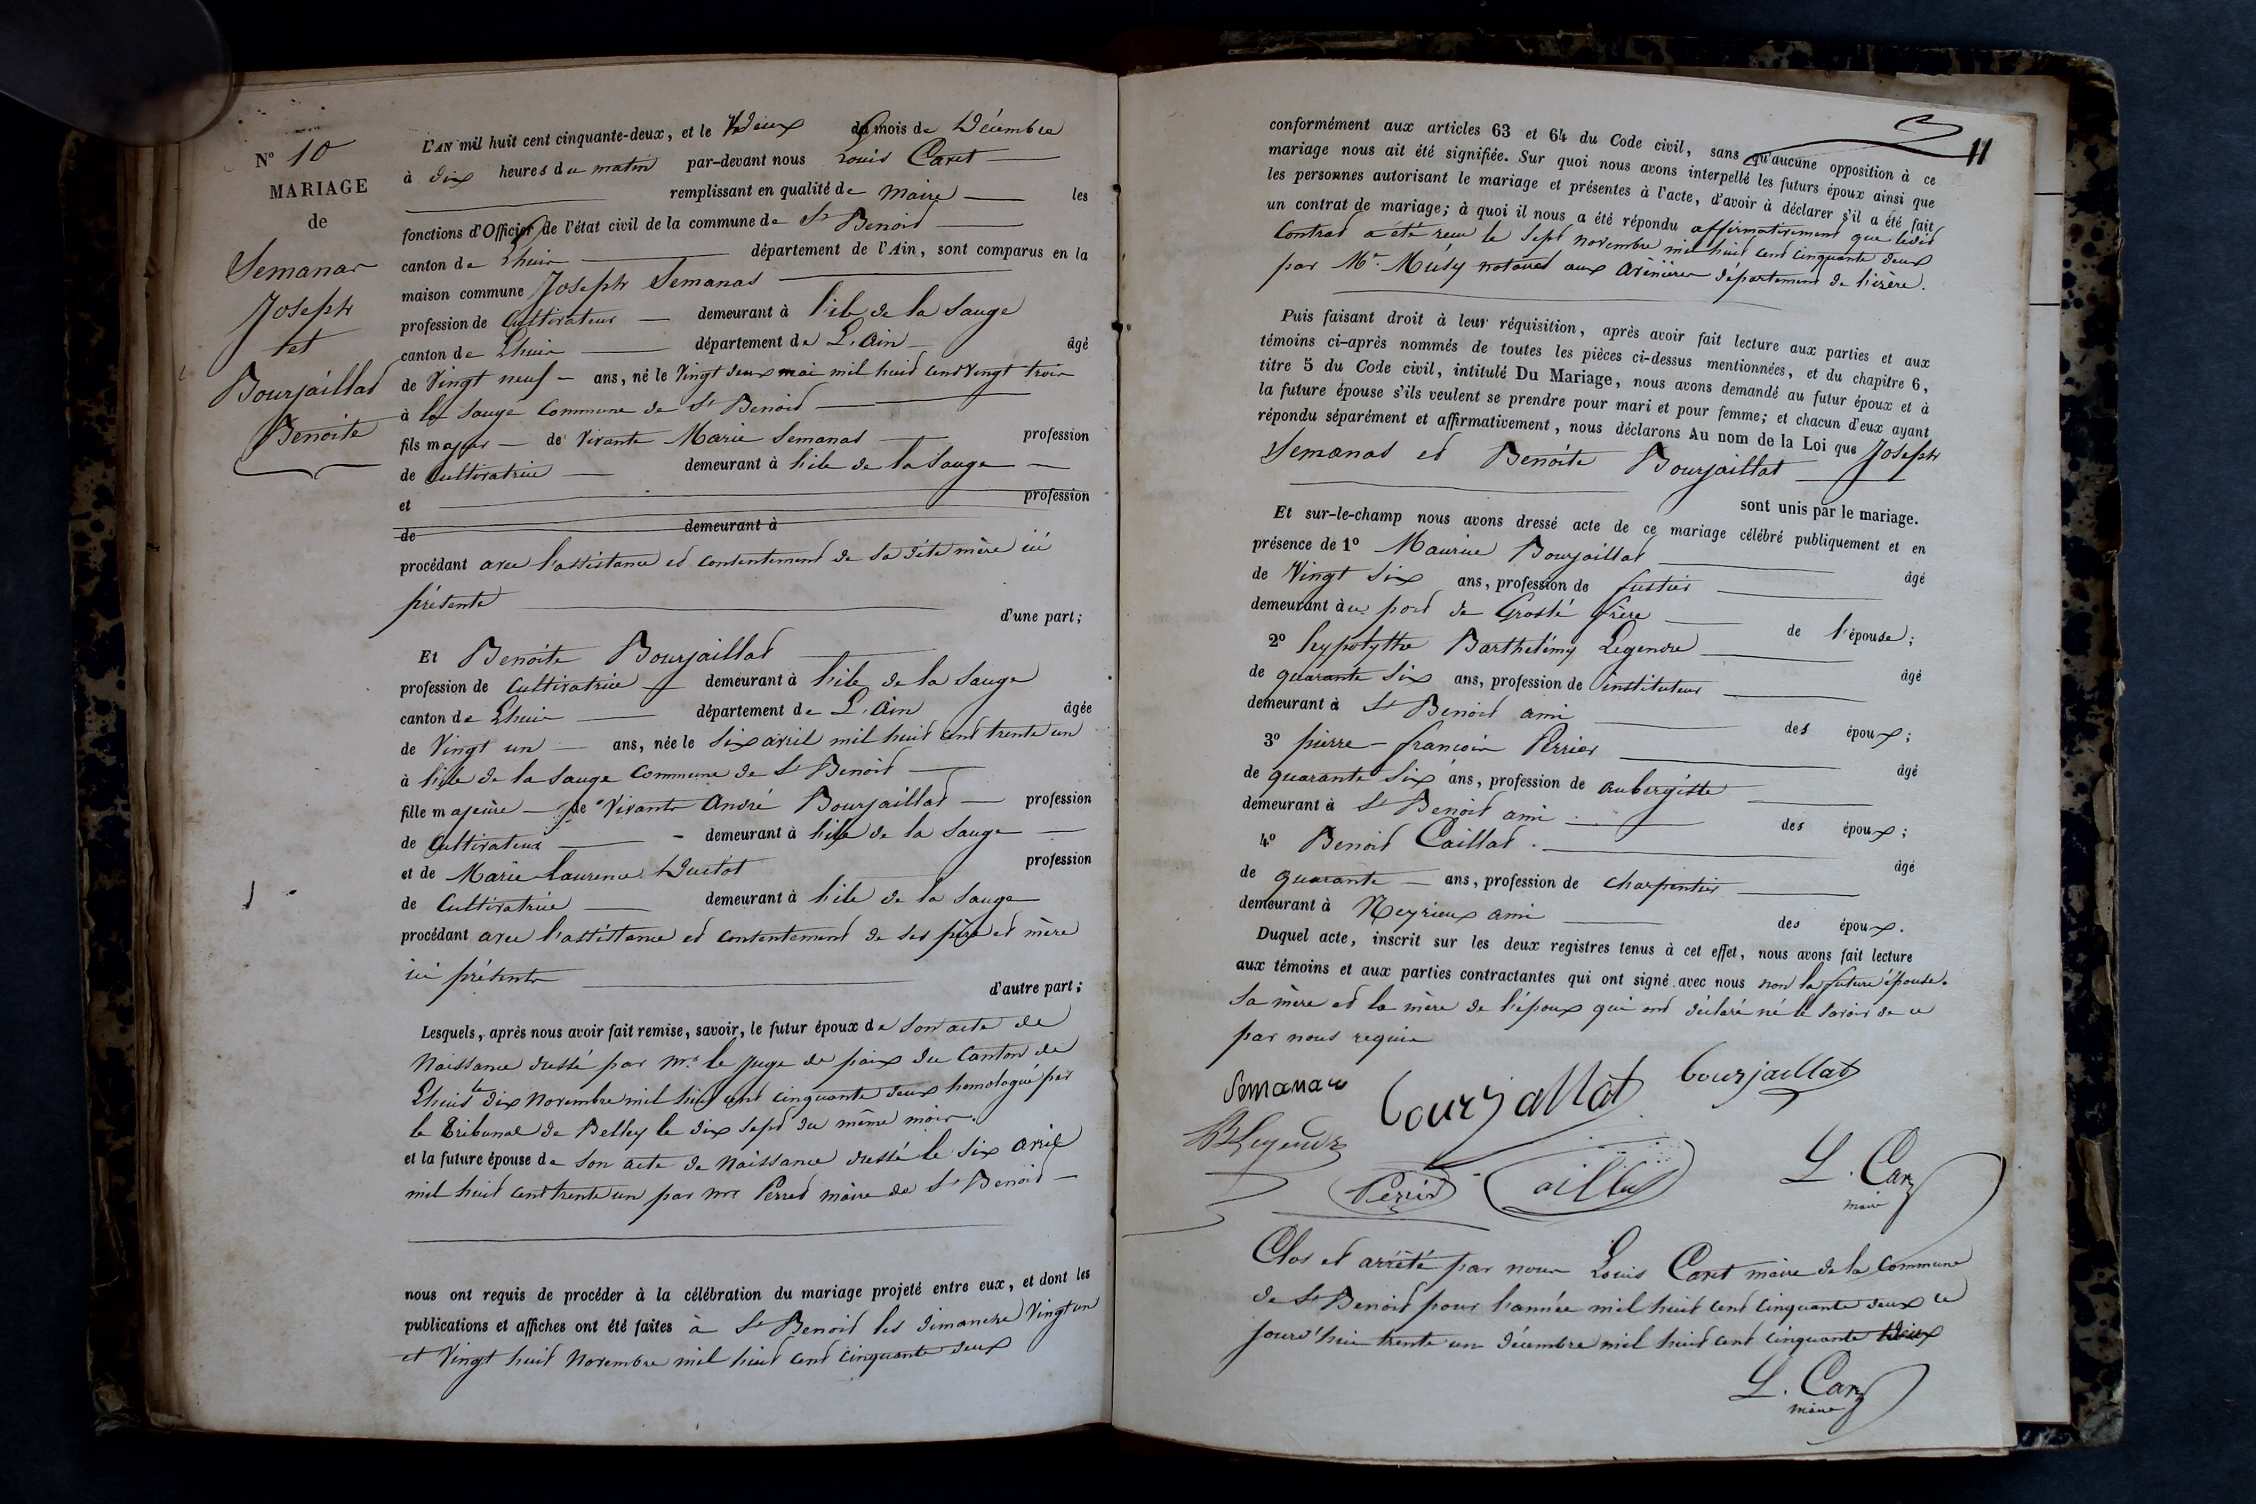 N° 10
MARIAGE
de
Semanas
Joseph
et
Bourjaillat
Benoite
L'AN mil huit cent cinquante-deux, et le deux du mois de Décembre
à dix heures du matin par-devant nous Louis Caret
remplissant en qualité de maire les
fonctions d'Officier de l'état civil de la commune de St Benoit
canton de Lhuis département de l'Ain, sont comparus en la
maison commune Joseph Semanas
profession de Cultivateur demeurant à l'ile de la Sauge
canton de Lhuis département de L'Ain âgé
de Vingt neuf ans, né le Vingt deux mai mil huit cent Vingt trois
à la Sauge Commune de St Benoit
fils majeur de Vivante Marie Semanas profession
de Cultivatrice demeurant à l'ile de la Sauge
et profession
de demeurant à
procédant avec l'assistance et contentement de sa dite mère ici
présente
d'une part;
Et Benoite Bourjaillat
profession de Cultivatrice demeurant à l'ile de la Sauge
canton de Lhuis département de L'Ain âgée
de Vingt un ans, née le six avril mil huit cent trente un
à l'ile de la Sauge Commune de St Benoit
fille majeure de Vivants André Bourjaillat profession
de Cultivateur demeurant à l'ile de la Sauge
et de Marie Laurence profession
de Cultivatrice demeurant à l'ile de la Sauge
procédant avec l'assistance et contentement de ses père et mère
ici présents
d'autre part;
Lesquels, après nous avoir fait remise, savoir, le futur époux de son acte de
Naissance dressé par mr le juge de paix du Canton de
Lhuis le dix novembre mil huit cent cinquante deux homologué par
le Tribunal de Belley le dix sept du même mois.
et la future épouse de son acte de Naissance dressé le six avril
mil huit cent trente un par mr Perret maire de St Benoit
nous ont requis de procéder à la célébration du mariage projeté entre eux, et dont les
publications et affiches ont été faites à St Benoit les dimanche Vingt un
et Vingt huit Novembre mil huit cent cinquante deux
11
conformément aux articles 63 et 64 du Code civil, sans qu'aucune opposition à ce
mariage nous ait été signifiée. Sur quoi nous avons interpellé les futurs époux ainsi que
les personnes autorisant le mariage et présentes à l'acte, d'avoir à déclarer s'il a été fait
un contrat de mariage; à quoi il nous a été répondu affirmativement que ledit
Contrat a été reçu le sept novembre mil huit cent cinquante deux
par Mr notaire aux Avenières département de l'isère.
Puis faisant droit à leur réquisition, après avoir fait lecture aux parties et aux
témoins ci-après nommés de toutes les pièces ci-dessus mentionnées, et du chapitre 6,
titre 5 du Code civil, intitulé Du Mariage, nous avons demandé au futur époux et à
la future épouse s'ils veulent se prendre pour mari et pour femme; et chacun d'eux ayant
répondu séparément et affirmativement, nous déclarons Au nom de la Loi que Joseph
Semanas et Benoite Bourjaillat
sont unis par le mariage.
Et sur-le-champ nous avons dressé acte de ce mariage célébré publiquement et en
présence de 1° Maurice Bourjaillat âgé
de Vingt six ans, profession de fustier
demeurant au port de Groslé frère de l'épouse;
2° heyppolythe Barthelémy Legendre âgé
de quarante six ans, profession de instituteur
demeurant à St Benoit ami des époux;
3° pierre françois Perrier âgé
de quarante six ans, profession de aubergiste
demeurant à St Benoit ami des époux;
4° Benoit Caillat. âgé
de quarante ans, profession de charpentier
demeurant à Neyrieux ami des époux.
Duquel acte, inscrit sur les deux registres tenus à cet effet, nous avons fait lecture
aux témoins et aux parties contractantes qui ont signé avec nous non la future épouse.
sa mère et la mère de l'époux qui ont déclaré né le savoir de ce
par nous requis
Semanas bourjallat bourjaillat
L. Caret
maire
Clos et arrêté par nous Louis Caret maire de la Commune
de St Benoit pour l'année mil huit cent cinquante deux ce
jourd'hui trente un décembre mil huit cent cinquante deux
L. Caret
maire